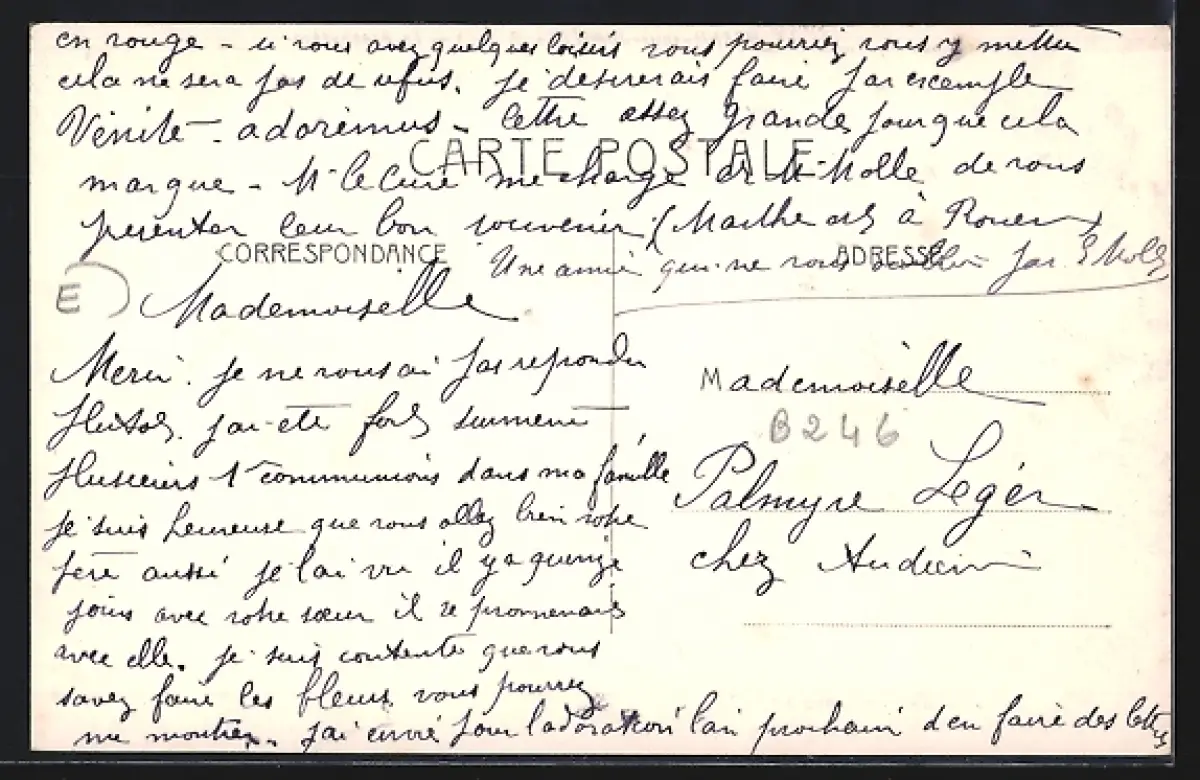 en rouge - si vous avez quelques loisirs vous pourriez vous y mettre
cela ne sera pas de refus. je désirerais faire par exemple
Vénité - adorémus - lettre assez grande pour que cela
CARTE POSTALE
marque - Mr le Curé me charge et Mr Molle de vous
présenter leur bon souvenir (Marthe est à Rouen)
CORRESPONDANCE
ADRESSE
Une amie qui ne vous oublie pas. E Molle
E
Mademoiselle
Merci. je ne vous ai pas répondu
plutôt. j'ai été fort surmené
plusieurs 1re communions dans ma famille
je suis heureuse que vous allez bien votre
père aussi je l'ai vu il y a quinze
jours avec votre sœur il se promenais
avec elle. je suis contente que vous
savez faire les fleurs vous pourrez
me montrer. j'ai envie pour l'adoration l'an prochain d'en faire des lettres
Mademoiselle
B246
Palmyre Léger
chez